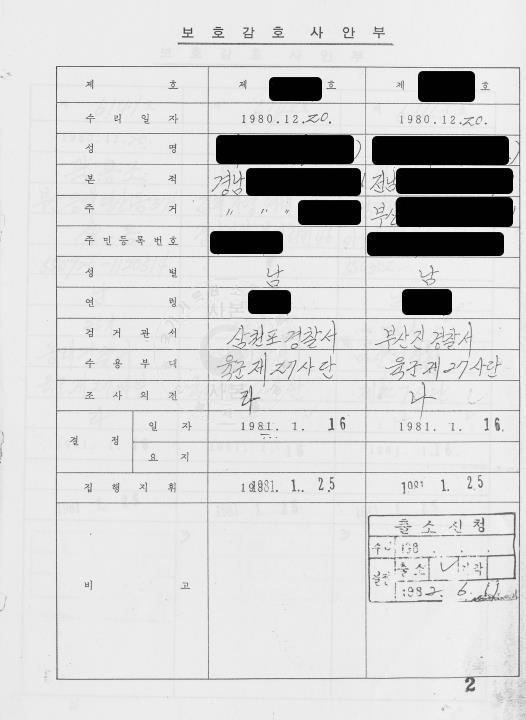 보 호 감 호 사 안 부
제 호 제 호 제 호
수 리 일 자 1980.12.20. 1980.12.20.
성 명
본 적 경남 전남
주 거 〃 〃 〃 부산
주 민 등 록 번 호
성 별 남 남
연 령
검 거 관 서 삼천포 경찰서 부산진 경찰서
수 용 부 대 육군 제 27사단 육군 제 27사단
조 사 의 견 라 나
결 정 일 자 1981. 1. 16 1981. 1. 16.
요 지
집 행 지 휘 1981. 1. 25 1981 1. 25
비 고
출 소 신 청
198 . . .
출 소 기 각
1982. 6. 11
2